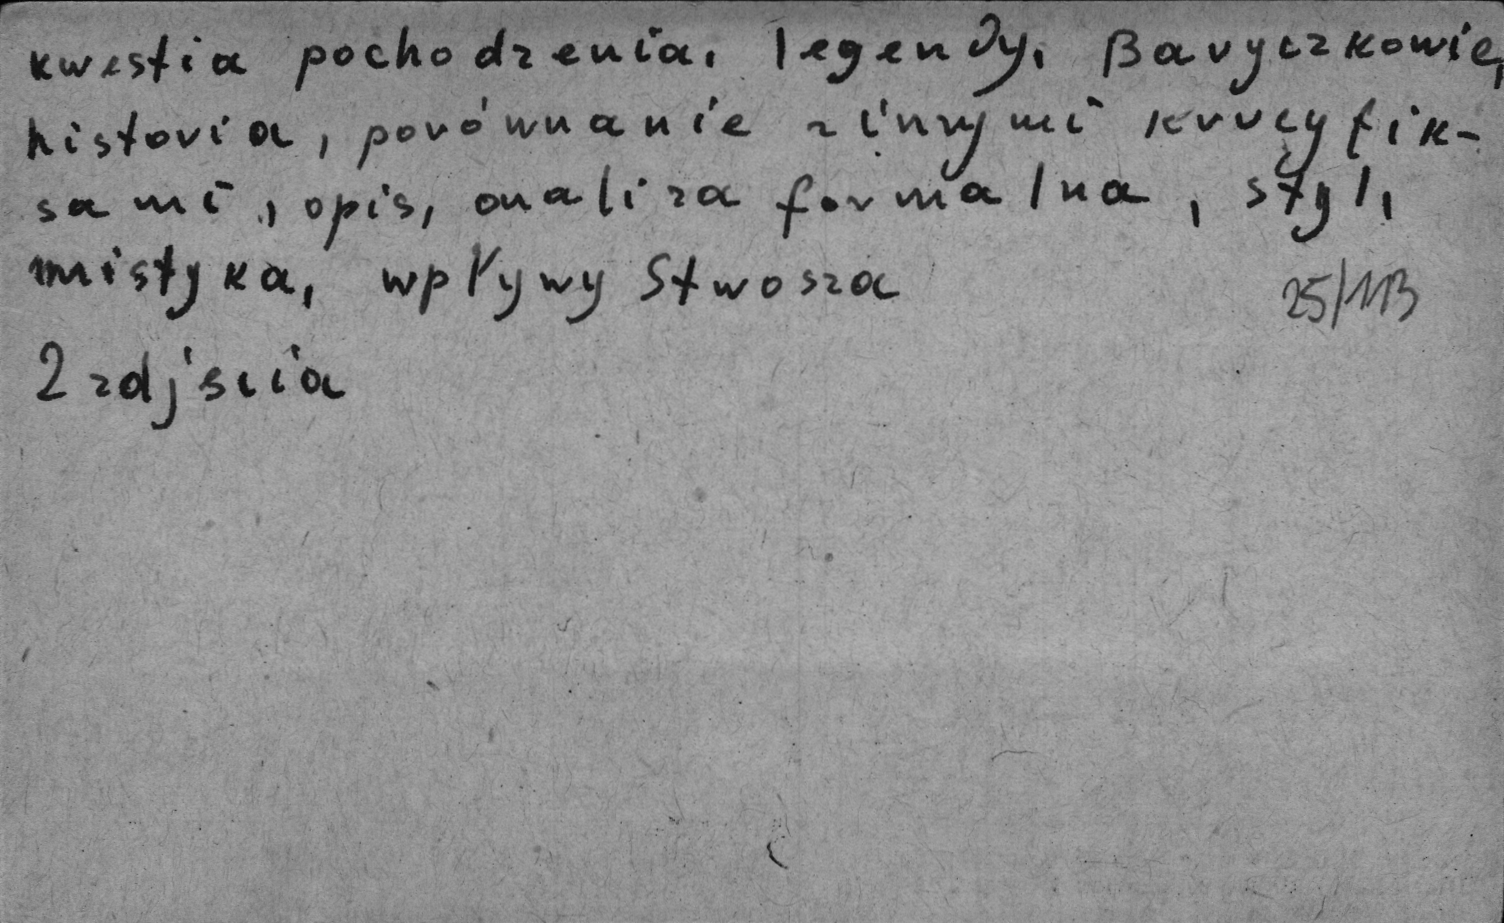 kwestia pochodzenia, legendy, Baryczkowie,
historia, porównanie z innymi krucyfik-
sami, opis, analiza formalna, styl,
mistyka, wpływy Stwosza
25/113
2 zdjścia